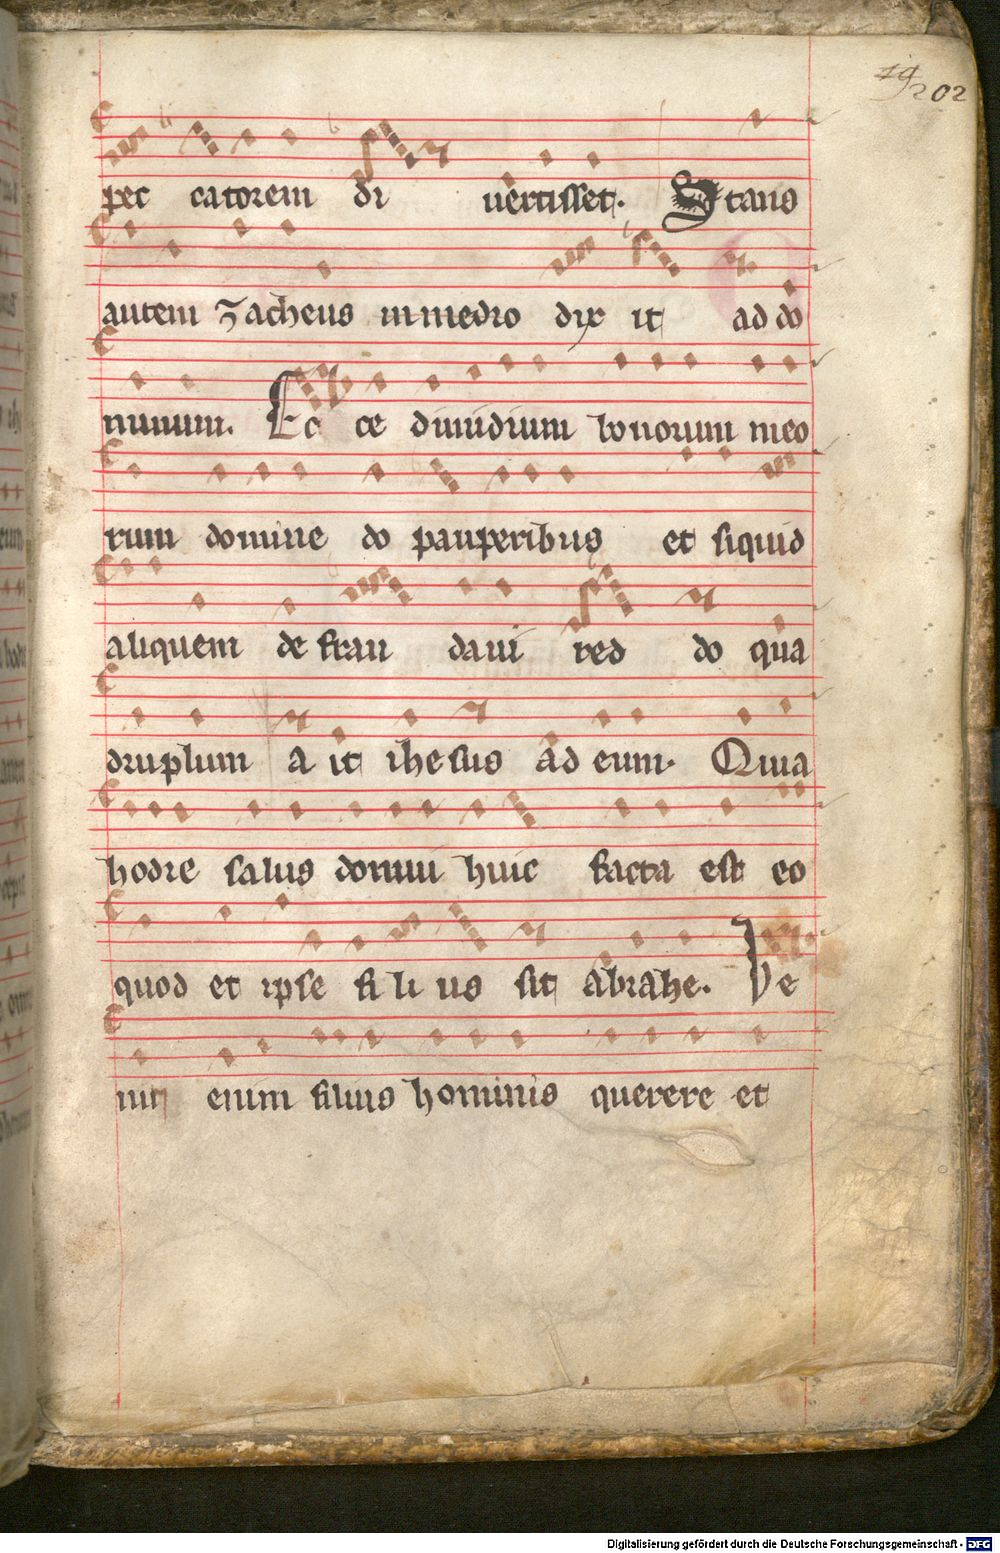 19 202
pec catorem di uertisset. Stans
autem Zacheus in medio dix it ad do
minum. Ec ce dimidium bonorum meo
rum domine do pauperibus et siquid
aliquem de frau daui red do qua
druplum a it ihesus ad eum. Quia
hodie salus domui huic facta est eo
quod et ipse fi li us sit abrahe. Ve
nit enim filius hominis querere et
Digitalisierung gefördert durch die Deutsche Forschungsgemeinschaft - DFG